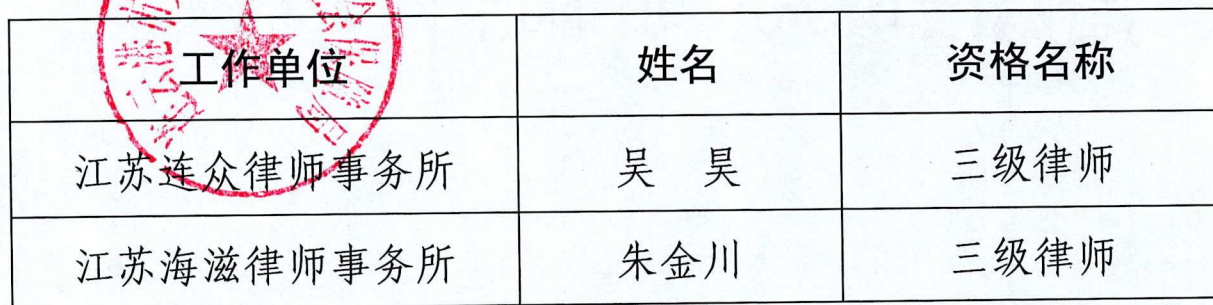 工作单位 姓名 资格名称
江苏连众律师事务所 吴 昊 三级律师
江苏海滋律师事务所 朱金川 三级律师